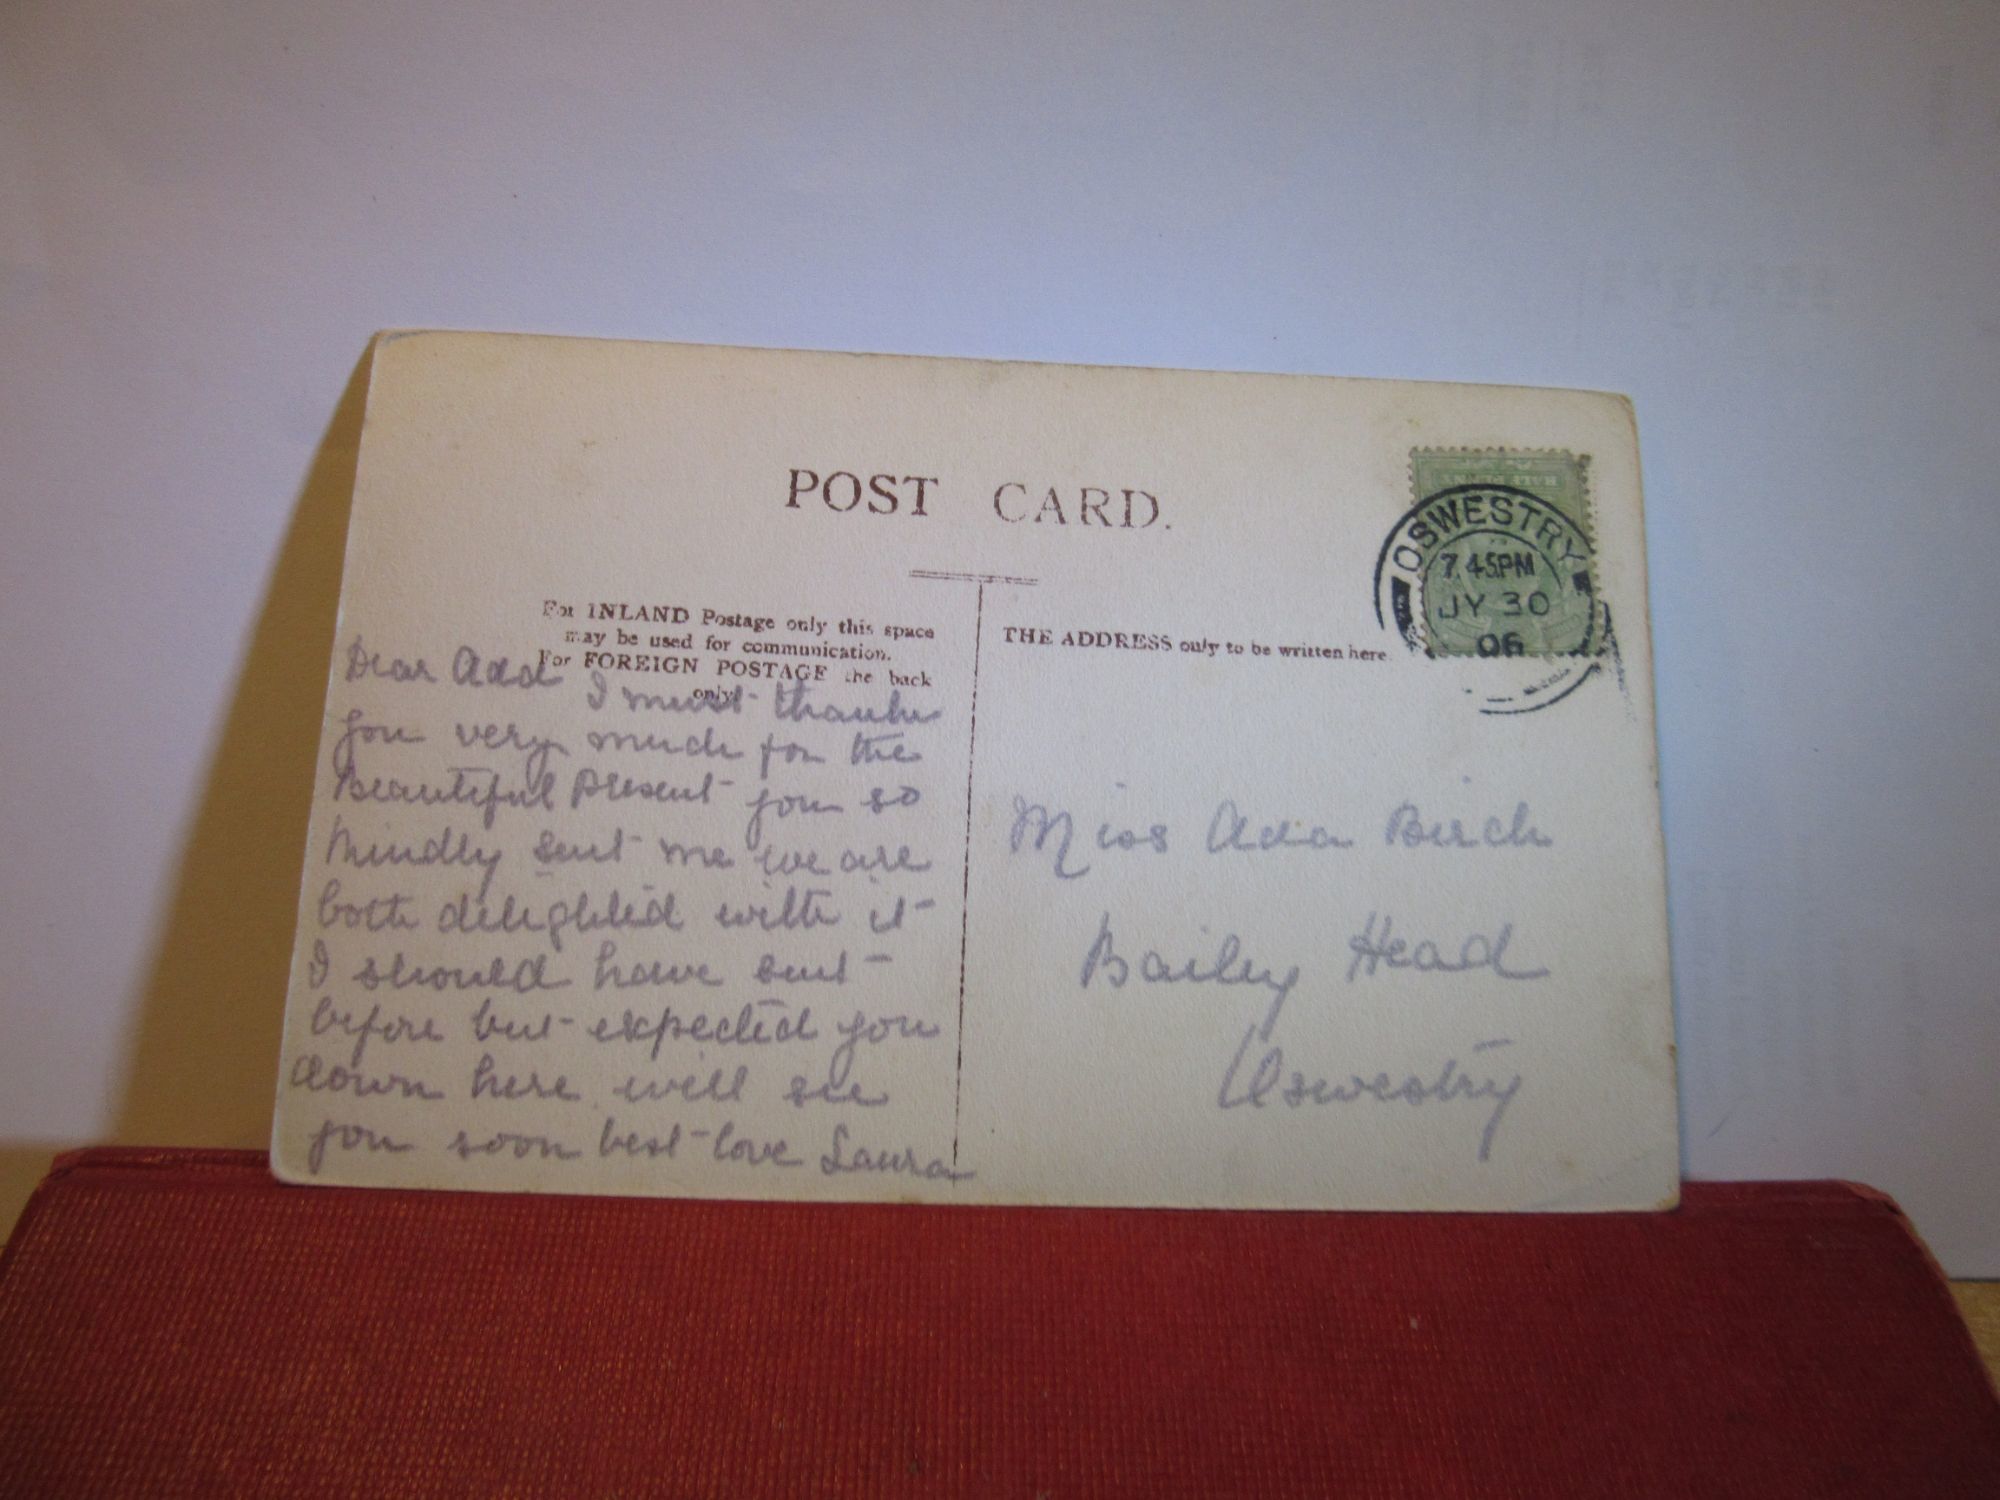 POST CARD.
HALF PENNY
OSWESTRY
7.45PM
JY 30
06
For INLAND Postage only this space
may be used for communication.
For FOREIGN POSTAGE the back
only.
THE ADDRESS only to be written here.
Dear Ada
I must thank
you very much for the
Beautiful Present you so
kindly sent me we are
both delighted with it
I should have sent
before but expected you
down here will see
you soon best love Laura
Miss Ada Birch
Bailey Head
Oswestry